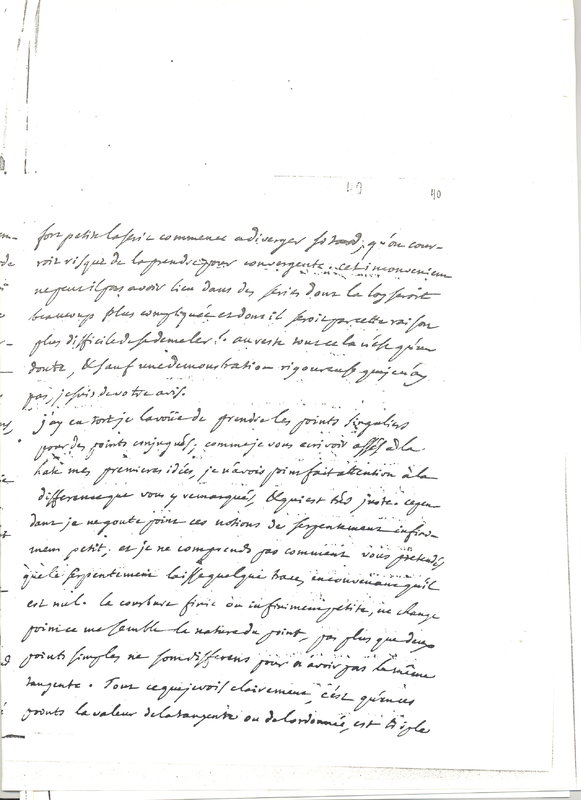 49 40
fort petite la serie commence a diverger si tard, qu'on cour-
roit risque de la prendre pour convergente. cet inconvenient
ne peut il pas avoir lieu dans des series dont la loy seroit
beaucoup plus compliquée et dont il seroit par cette raison
plus difficile de se demeler? au reste tout cela n'est qu'un
doute, & sauf une demonstration rigoureuse que je n'ay
pas, je suis de votre avis.
j'ay eu tort je l'avoüe de prendre les points singuliers
pour des points conjugués, comme je vous ecrivois assés à la
hate mes premieres idées, je n'avois point fait attention à la
difference que vous y remarqués, & qui est très juste. cepen-
dant je ne goute point ces notions de serpentement infini-
ment petit, et je ne comprends pas comment vous pretendés
que le serpentement laisse quelque trace, en convenant qu'il
est nul. la courbure finie ou infiniment petite, ne change
point ce me semble la nature du point, pas plus que deux
points simples ne sont differens pour n'avoir pas la même
tangente. Tout ce que je vois clairement, c'est qu'en ces
points la valeur de la tangente ou de l'ordonnée, est triple